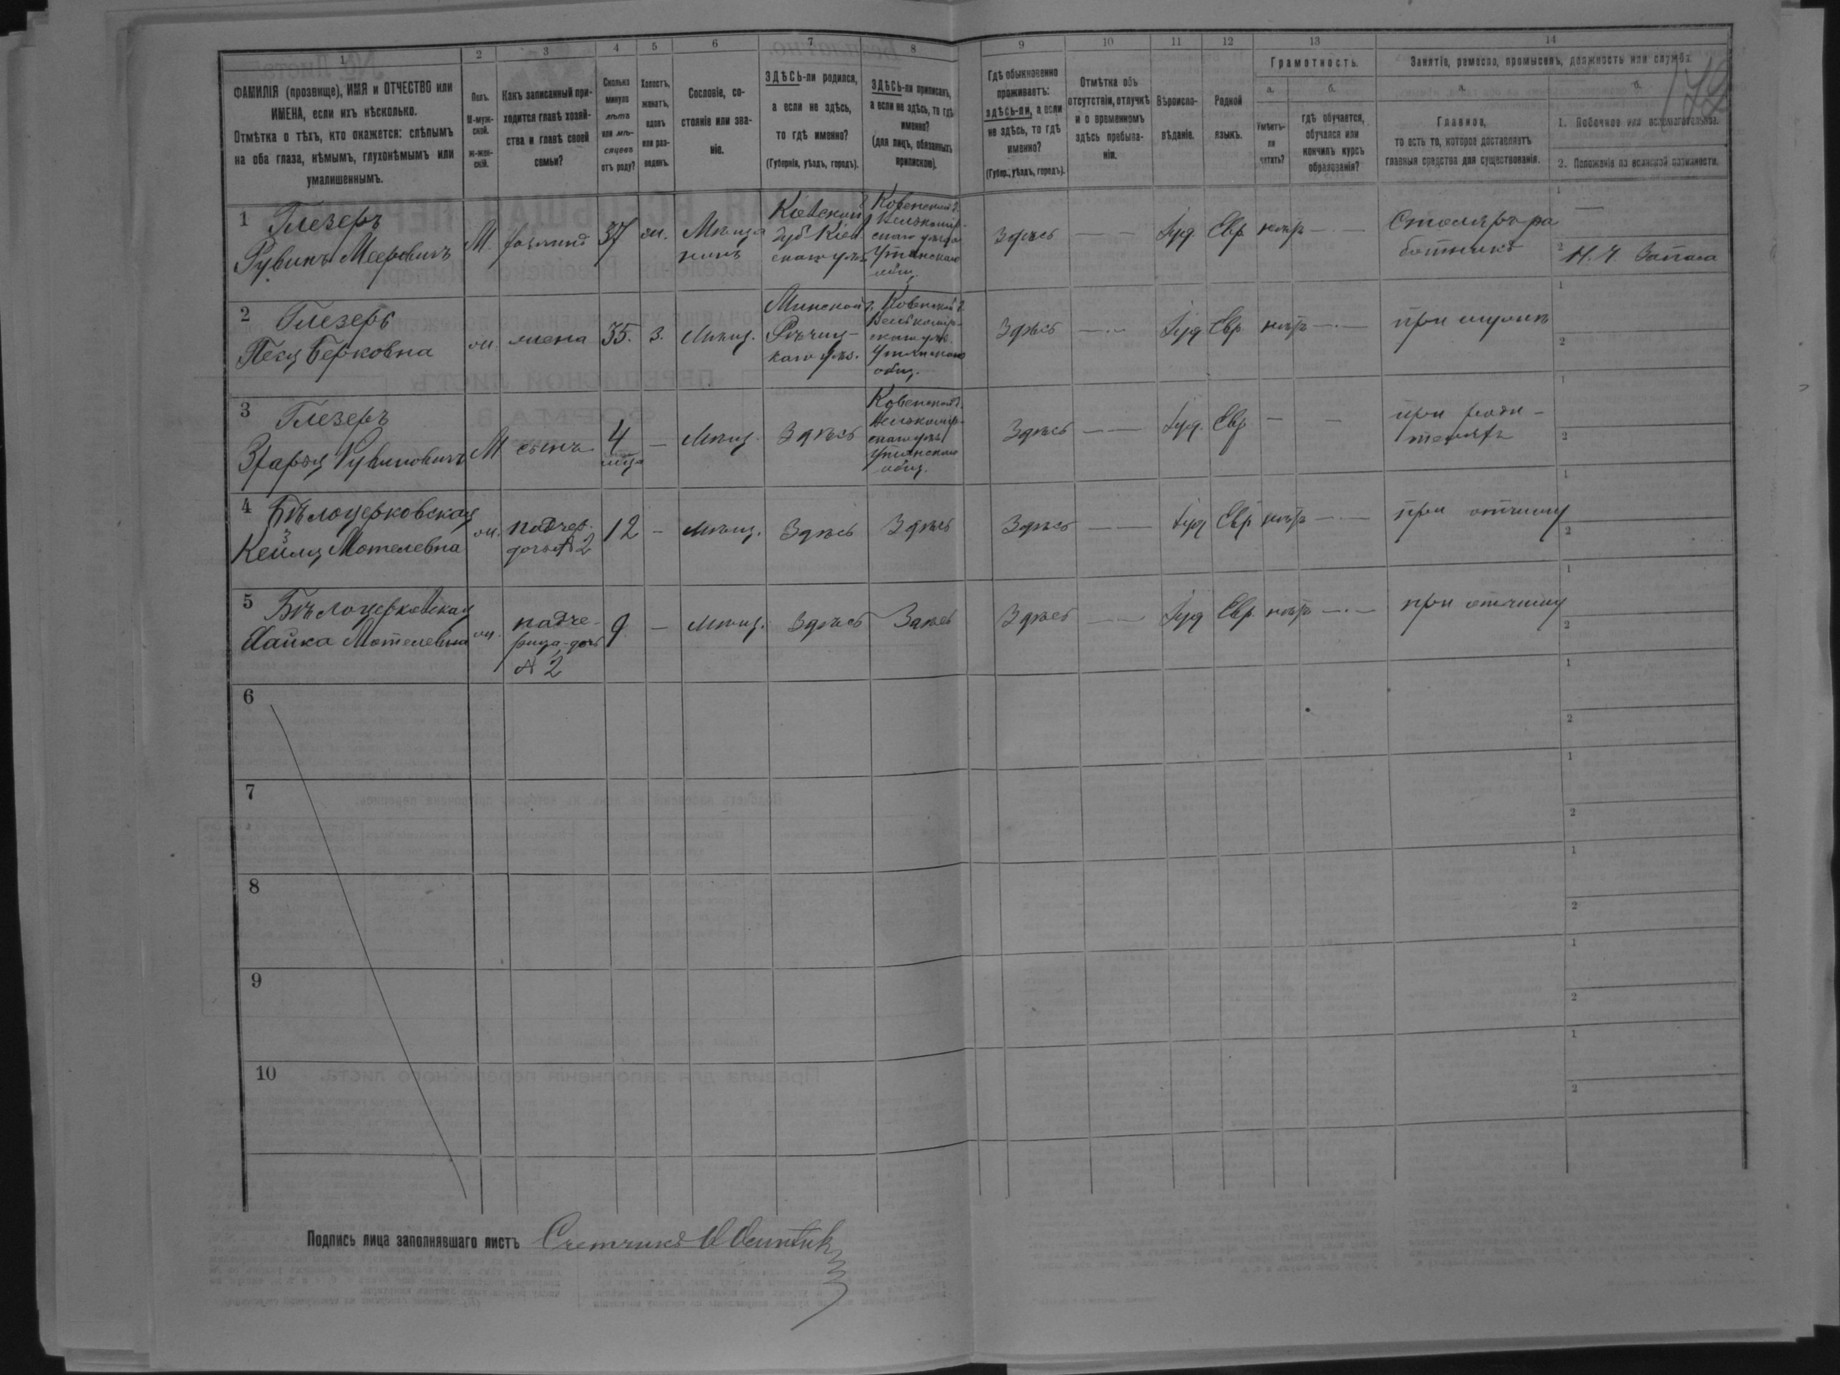 1 2 3 4 5 6 7 8 9 10 11 12 13 14
ФАМИЛІЯ (прозвище), ИМЯ и ОТЧЕСТВО или
ИМЕНА, если ихъ нѣсколько.
Отмѣтка о тѣхъ, кто окажется: слѣпымъ
на оба глаза, нѣмымъ, глухонѣмымъ или
умалишеннымъ.
Полъ.
М-муж-
ской.
ж-жен-
скій.
Какъ записанный при-
ходится главѣ хозяй-
ства и главѣ своей
семьи?
Сколько
минуло
лѣтъ
или мѣ-
сяцевъ
отъ роду?
Холостъ,
женатъ,
вдовъ
или раз-
веденъ.
Сословіе, со-
стояніе или зва-
ніе.
ЗДѢСЬ-ли родился,
а если не здѣсь,
то гдѣ именно?
(Губернія, уѣздъ, городъ).
ЗДѢСЬ-ли приписанъ,
а если не здѣсь, то гдѣ
именно?
(для лицъ, обязанныхъ
припискою).
Гдѣ обыкновенно
проживаетъ:
здѣсь-ли, а если
не здѣсь, то гдѣ
именно?
(Губер., уѣздъ, городъ).
Отмѣтка объ
отсутствіи, отлучкѣ
и о временномъ
здѣсь пребыва-
ніи.
Вѣроиспо-
вѣданіе.
Родной
языкъ.
Грамотность.
а.
Умѣетъ-
ли
читать?
б.
гдѣ обучается,
обучался или
кончилъ курсъ
образованія?
Занятіе, ремесло, промыселъ, должность или служба.
а.
Главное,
то есть то, которое доставляетъ
главныя средства для существованія.
б.
1. Побочное или вспомогательное.
2. Положеніе по воинской повинности.
1 Глезеръ
Рувинъ Мееровичъ
М. хозяинъ 37 ж. Мѣща
нинъ
Кіевской
губ. Кіев
скаго уѣз.
Ковенской г.
Велькомір-
скаго уѣзда
Утянскаго
общ.
Здѣсь — — Іуд Евр нѣтъ — — Столяръ ра
ботникъ
1 —
2
2 Глезеръ
Песя Берковна
ж. жена 35. З. Мѣщ.
Минской г.
Рѣчиц-
каго уѣз.
Ковенской г.
Велькомір-
скаго уѣз.
Утянскаго
общ.
Здѣсь — — Іуд Евр нѣтъ — — при мужѣ
1
2
3 Глезеръ
Рувиновичъ
М сынъ 4
— Мѣщ. Здѣсь
Ковенской г.
Велькомір-
скаго уѣз
Утянскаго
общ.
Здѣсь — — Іуд. Евр — — при роди-
теляхъ
1
2
4 Бѣлоцерковская
Кейля Мотелевна
ж. падчер.
дочь № 2
12 — Мѣщ. Здѣсь Здѣсь Здѣсь — — Іуд Евр нѣтъ — — при отчиму
1
2
5 Бѣлоцерковская
Хайка Мотелевна
ж. падче-
рица-дочь
№ 2
9 — Мѣщ. Здѣсь Здѣсь Здѣсь — — Іуд Евр. нѣтъ — — при отчиму
1
2
6
1
2
7
1
2
8
1
2
9
1
2
10
1
2
Подпись лица заполнявшаго листъ Счетчикъ